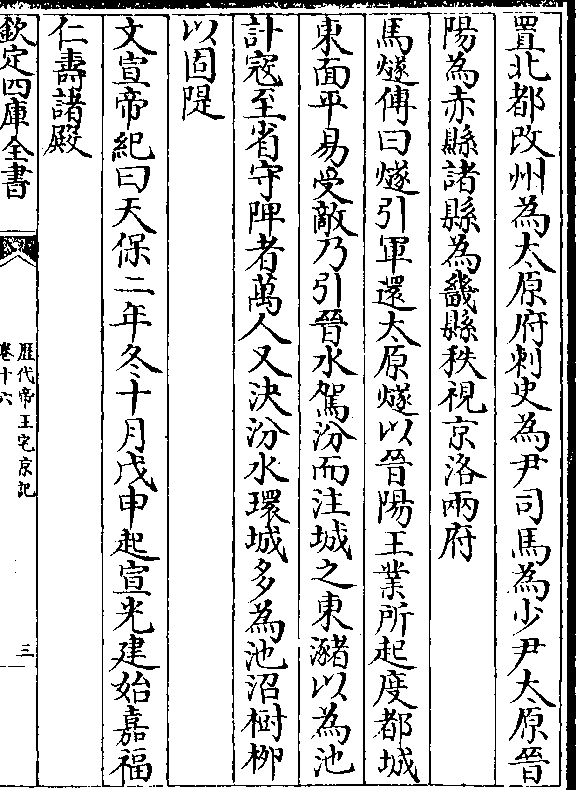 置北都改州為太原府刺史為尹司馬為少尹太原晉
陽為赤縣諸縣為畿縣秩視京洛兩府
馬燧傳曰燧引軍還太原燧以晉陽王業所起度都城
東面平易受敵乃引晉水駕汾而注城之東瀦以為池
計寇至省守陴者萬人又決汾水環城多為池沼樹栁
以固隄
文宣帝紀曰天保二年冬十月戊申起宣光建始嘉福
仁壽諸殿
欽定四庫全書
歴代帝王宅京記
卷十六
三